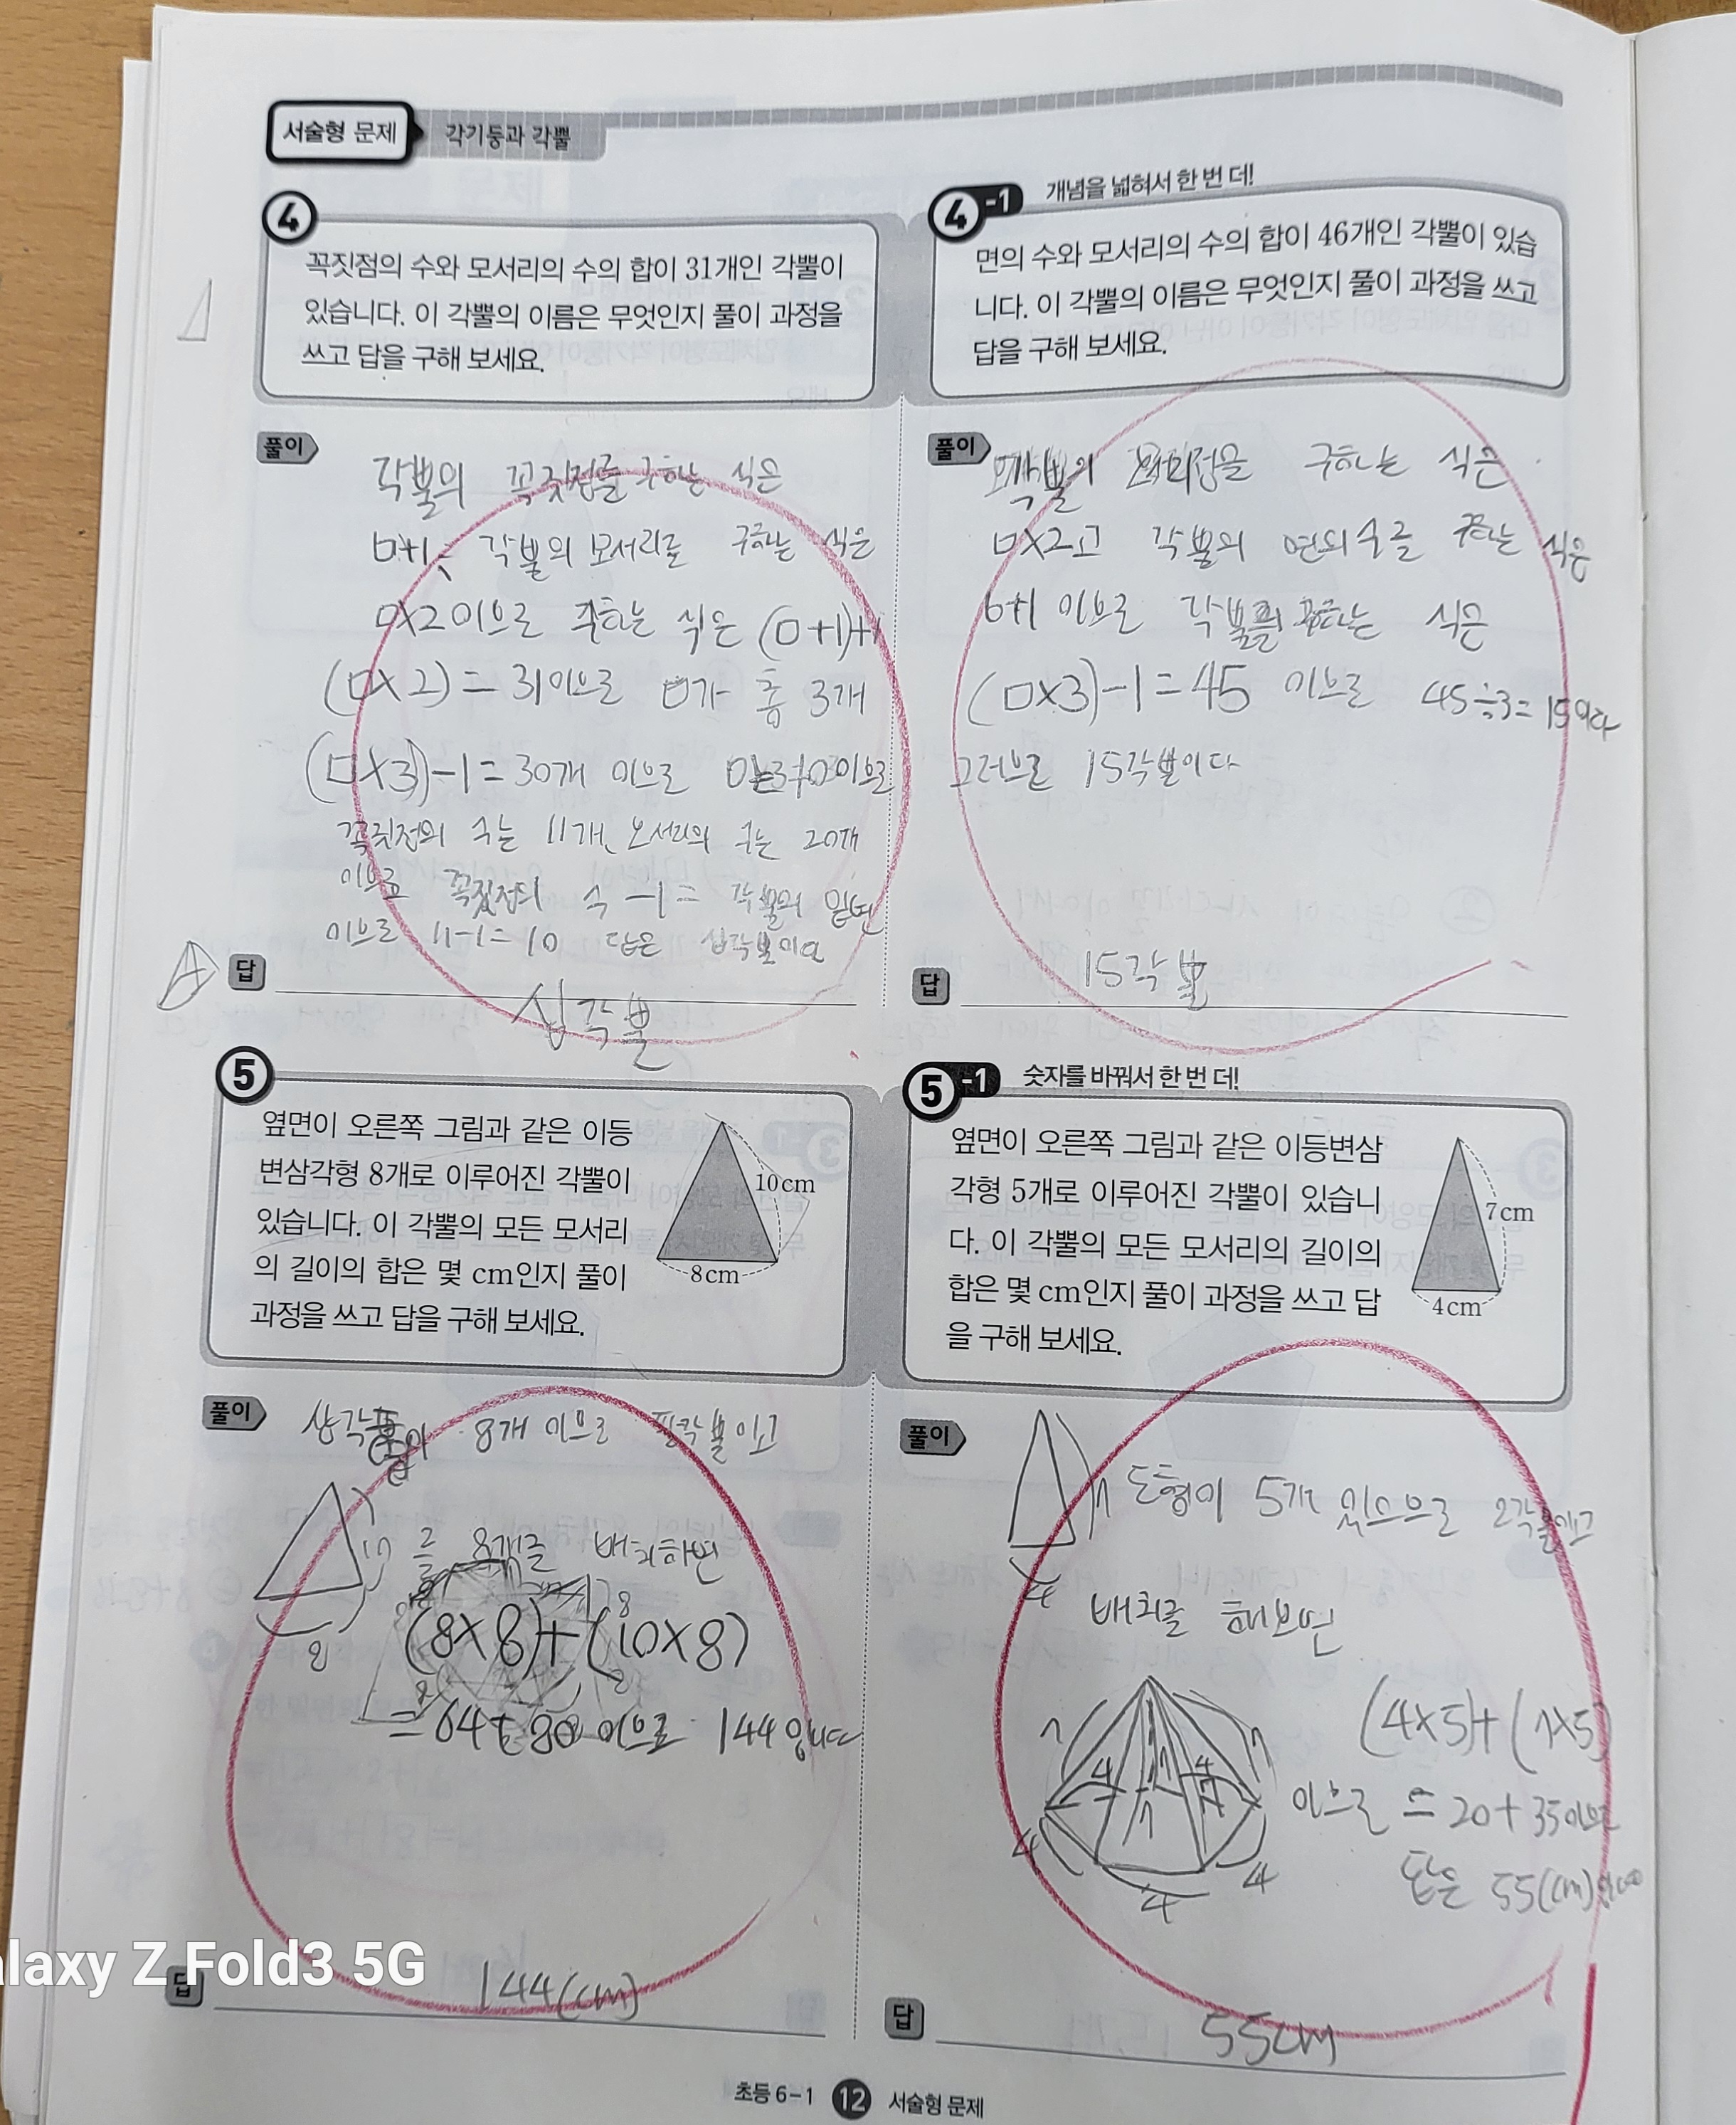 서술형 문제
각기둥과 각뿔
4
꼭짓점의 수와 모서리의 수의 합이 31개인 각뿔이
있습니다. 이 각뿔의 이름은 무엇인지 풀이 과정을
쓰고 답을 구해 보세요.
풀이
각뿔의 꼭짓점를 구하는 식은
각뿔의 모서리로 구하는 식은
□×2이므로 구하는 식은 (□+1)+
(□×2)=31이므로 □가 총 3개
(□×3)-1=30개 이므로
꼭짓점의 수는 11개, 모서리의 수는 20개
이므로 꼭짓점의 수 -1= 각뿔의 밑면
이므로 11-1=10 답은 십각뿔이다
답
십각뿔
4-1 개념을 넓혀서 한 번 더!
면의 수와 모서리의 수의 합이 46개인 각뿔이 있습
니다. 이 각뿔의 이름은 무엇인지 풀이 과정을 쓰고
답을 구해 보세요.
풀이
구하는 식은
□×2고 각뿔의 면의 수를 구하는 식은
이므로 각뿔를 구하는 식은
(□×3)-1=45 이므로 45÷3=15이다
그러므로 15각뿔이다
답
15각뿔
5
옆면이 오른쪽 그림과 같은 이등
변삼각형 8개로 이루어진 각뿔이
있습니다. 이 각뿔의 모든 모서리
의 길이의 합은 몇 cm인지 풀이
과정을 쓰고 답을 구해 보세요.
10cm
8cm
풀이
8개 이므로 팔각뿔이고
10
8
를 8개를 배치하면
(8×8)+(10×8)
=64+80 이므로 144입니다
답
144(cm)
5-1 숫자를 바꿔서 한 번 더!
옆면이 오른쪽 그림과 같은 이등변삼
각형 5개로 이루어진 각뿔이 있습니
다. 이 각뿔의 모든 모서리의 길이의
합은 몇 cm인지 풀이 과정을 쓰고 답
을 구해 보세요.
7cm
4cm
풀이
7 도형이 5개 있으므로 오각뿔이고
4
배치를 해보면
7
7
4
4
7
7
4
4
4
(4×5)+(7×5)
이므로 =20+35이므로
답은 55(cm)
답
55cm
alaxy Z Fold3 5G
초등 6-1 12 서술형 문제